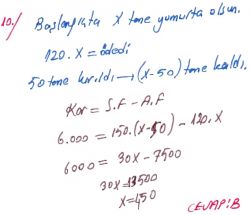 10./ Başlangıçta x tane yumurta olsun.
120.x = ödedi
50 tane kırıldı → (x-50) tane kaldı.
Kar = S.F - A.F
6.000 = 150.(x-50) - 120.x
6000 = 30x - 7500
30x = 13500
x = 450
CEVAP: B